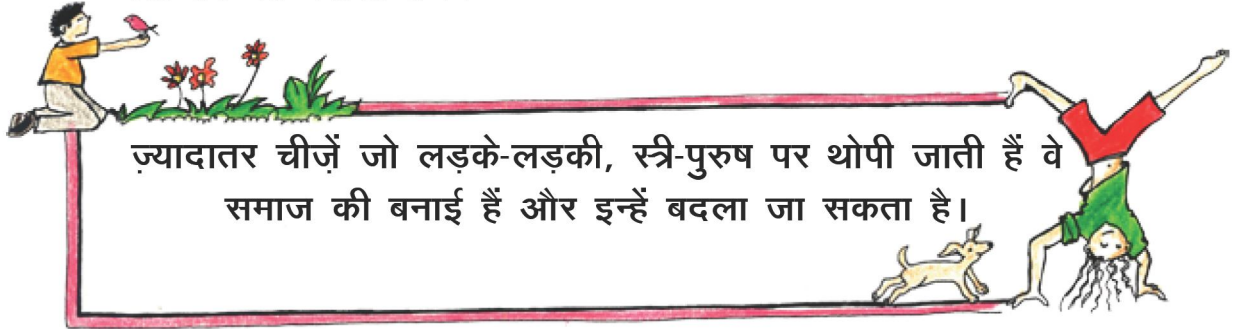 ज़्यादातर चीज़ें जो लड़के-लड़की, स्त्री-पुरुष पर थोपी जाती हैं वे
समाज की बनाई हैं और इन्हें बदला जा सकता है।